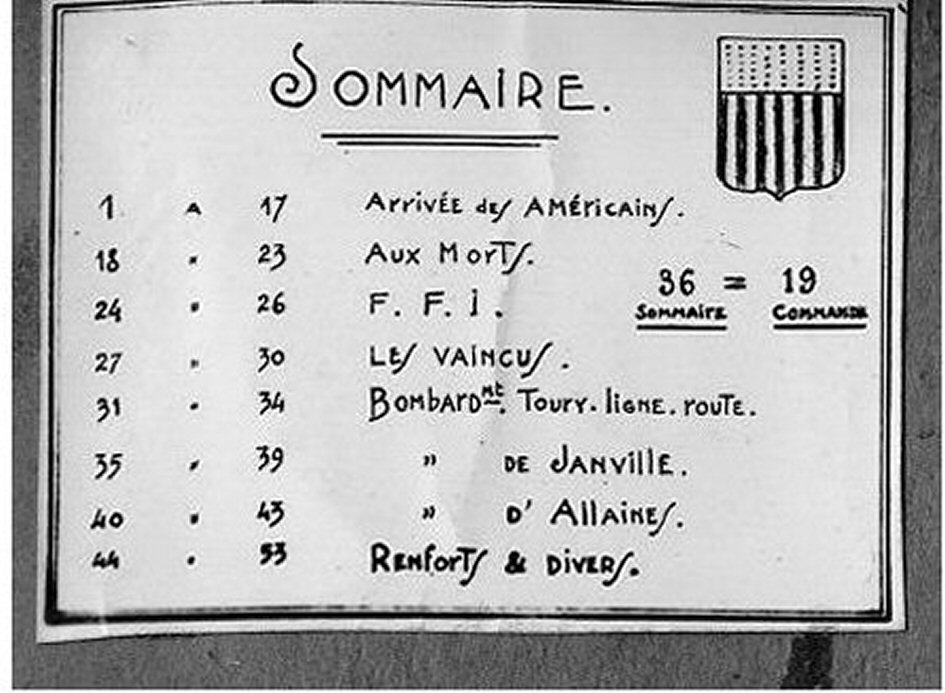 SOMMAIRE.
1 A 17 Arrivée des Américains.
18 " 23 Aux Morts.
24 " 26 F. F. I.
36 = 19
Sommaire Commande
27 " 30 Les vaincus.
31 " 34 Bombardmt. Toury. ligne. route.
35 " 39 " de Janville.
40 " 43 " d'Allaines.
44 " 53 Renforts & divers.